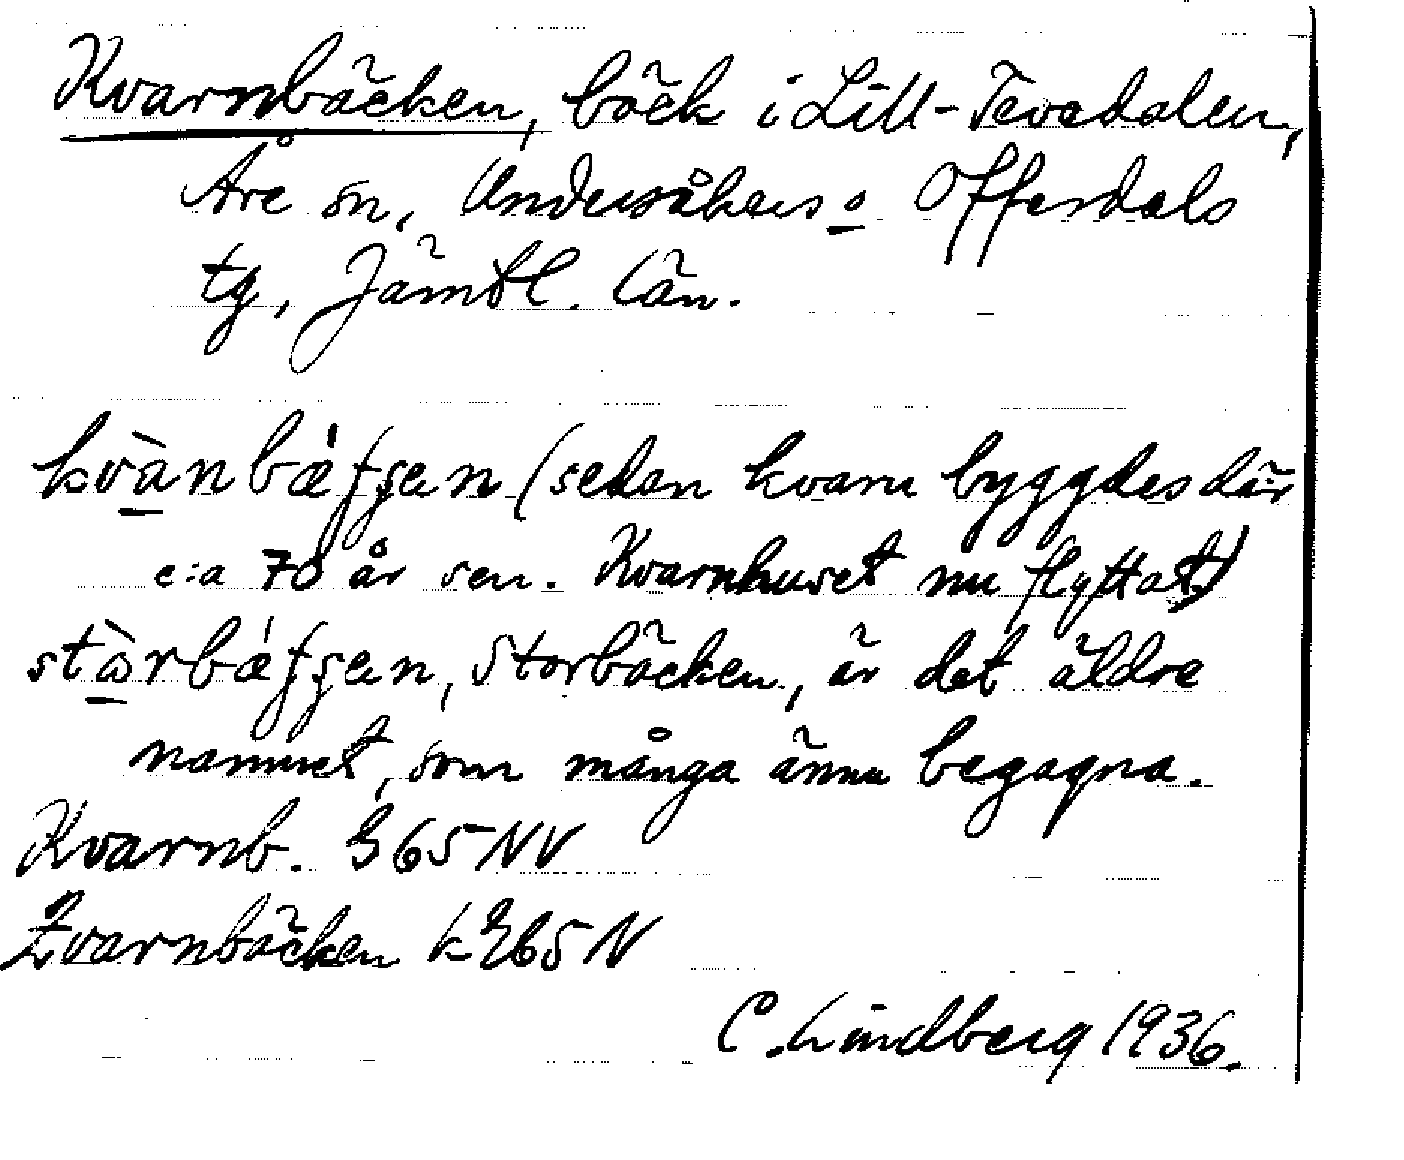 Kvarnbäcken, bäck i Lill-Tevedalen,
Åre sn, Undersåkers o Offerdals
tg, Jämtl. län.
kvànbǽʃʃen (sedan kvarn byggdes där
c:a 70 år sen. Kvarnhuset nu flyttat)
stàrbǽʃʃen, Storbäcken, är det äldre
namnet, som många ännu begagna.
Kvarnb. G65NV
Kvarnbäcken k G65N
C. Lindberg 1936.